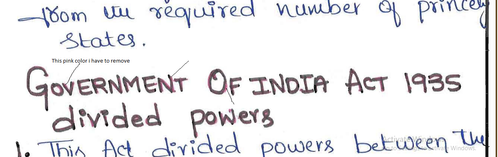 from the required number of princely
States.
This pink color i have to remove
GOVERNMENT OF INDIA ACT 1935
divided powers
1. This Act divided powers between the